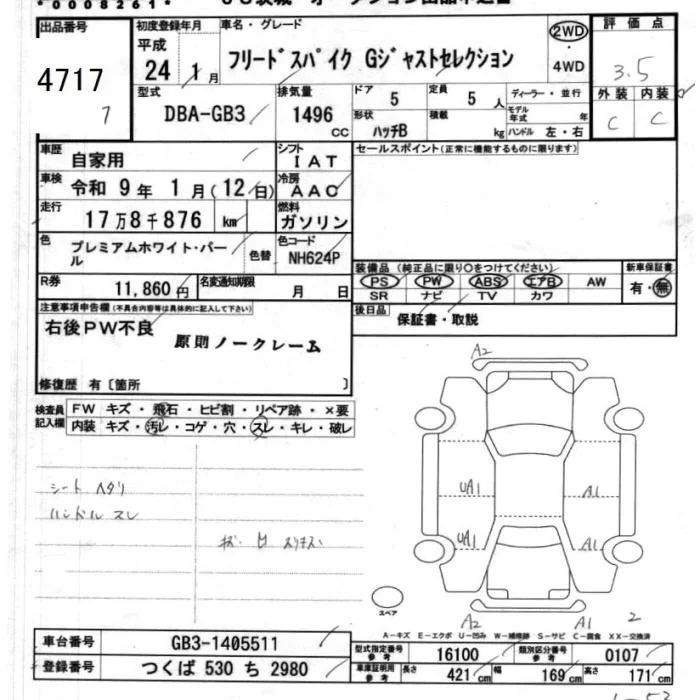 *0008261*
出品番号
4717
7
初度登録年月
平成
24年 1月
車名・グレード
フリードスパイク Gジャストセレクション
2WD
・
4WD
評価点
3.5
外装 内装
C C
型式
DBA-GB3
排気量
1496 CC
ドア 5
定員 5 人
形状 ハッチB
積載 kg
ディーラー・並行
モデル年式 年
ハンドル 左・右
車歴 自家用
シフト IAT
セールスポイント(正常に機能するものに限ります)
車検 令和 9年 1月(12日)
冷房 AAC
走行 17万8千876 km
燃料 ガソリン
色 プレミアムホワイト・パール
色替
色コード NH624P
装備品(純正品に限り○をつけてください)
PS・PW・ABS・エアB・ AW
SR ナビ TV カワ
新車保証書
有・無
R券 11,860円
名変通知期限 月 日
後日品 保証書・取説
注意事項申告欄(不具合内容等は具体的に記入して下さい)
右後PW不良
原則ノークレーム
修復歴 有〔箇所 〕
検査員記入欄
FW キズ・飛石・ヒビ割・リペア跡・×要
内装 キズ・汚レ・コゲ・穴・スレ・キレ・破レ
シート ヘタリ
ハンドル スレ
A2
UA1
A1
UA1
A1
A2
A1
2
スペア
A-キズ E-エクボ U-凹み W-補修跡 S-サビ C-腐食 XX-交換済
車台番号 GB3-1405511
登録番号 つくば 530 ち 2980
型式指定番号 参考 16100
類別区分番号 参考 0107
車庫証明用 参考 長さ 421cm 幅 169cm 高さ 171cm